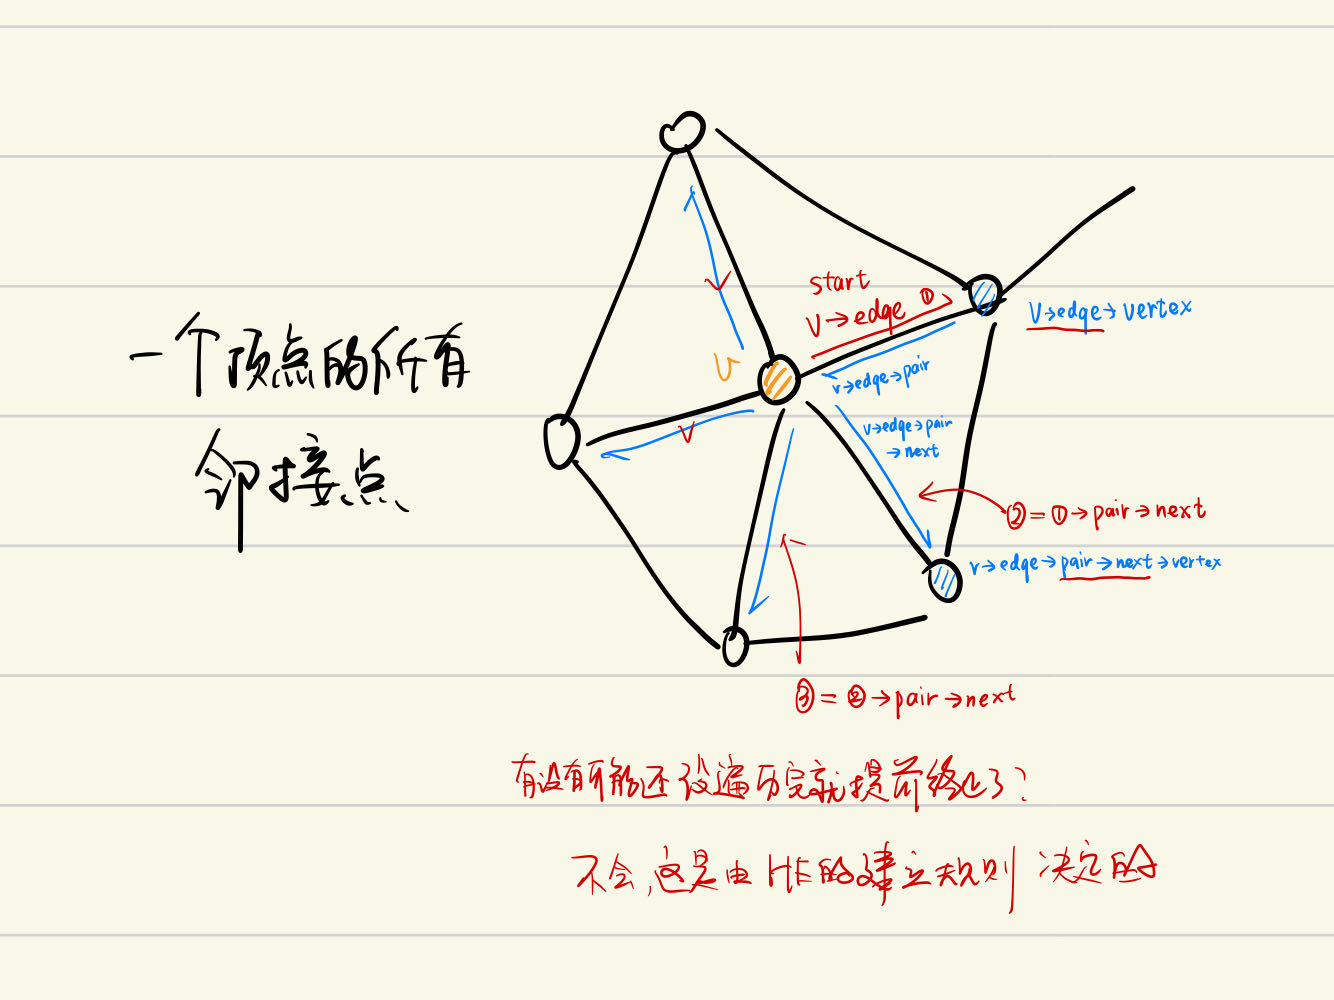 一个顶点的所有
邻接点
start
V→edge ①
V→edge→vertex
v
v→edge→pair
v→edge→pair
→next
②=①→pair→next
v→edge→pair→next→vertex
③=②→pair→next
有没有可能还没遍历完就提前终止了?
不会,这是由HE的建立规则决定的